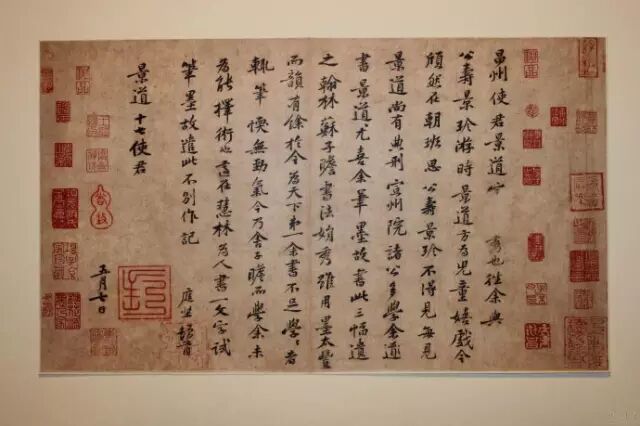 昌州使君景道宗秀也往余與
公壽景珍游時景道方為兒童嬉戲今
頎然在朝班思公壽景珍不得見每見
景道尚有典刑宣州院諸公多學余
書景道尤喜余筆墨故書此三幅遺
之翰林蘇子瞻書法娟秀雖用墨太豐
而韻有餘於今為天下弟一余書不足學〻者
輒筆愞無勁氣今乃舍子瞻而學余未
為能擇術也適在慧林為人書一文字試
筆墨故遣此不別作記庭堅頓首
景道十七使君
五月七日